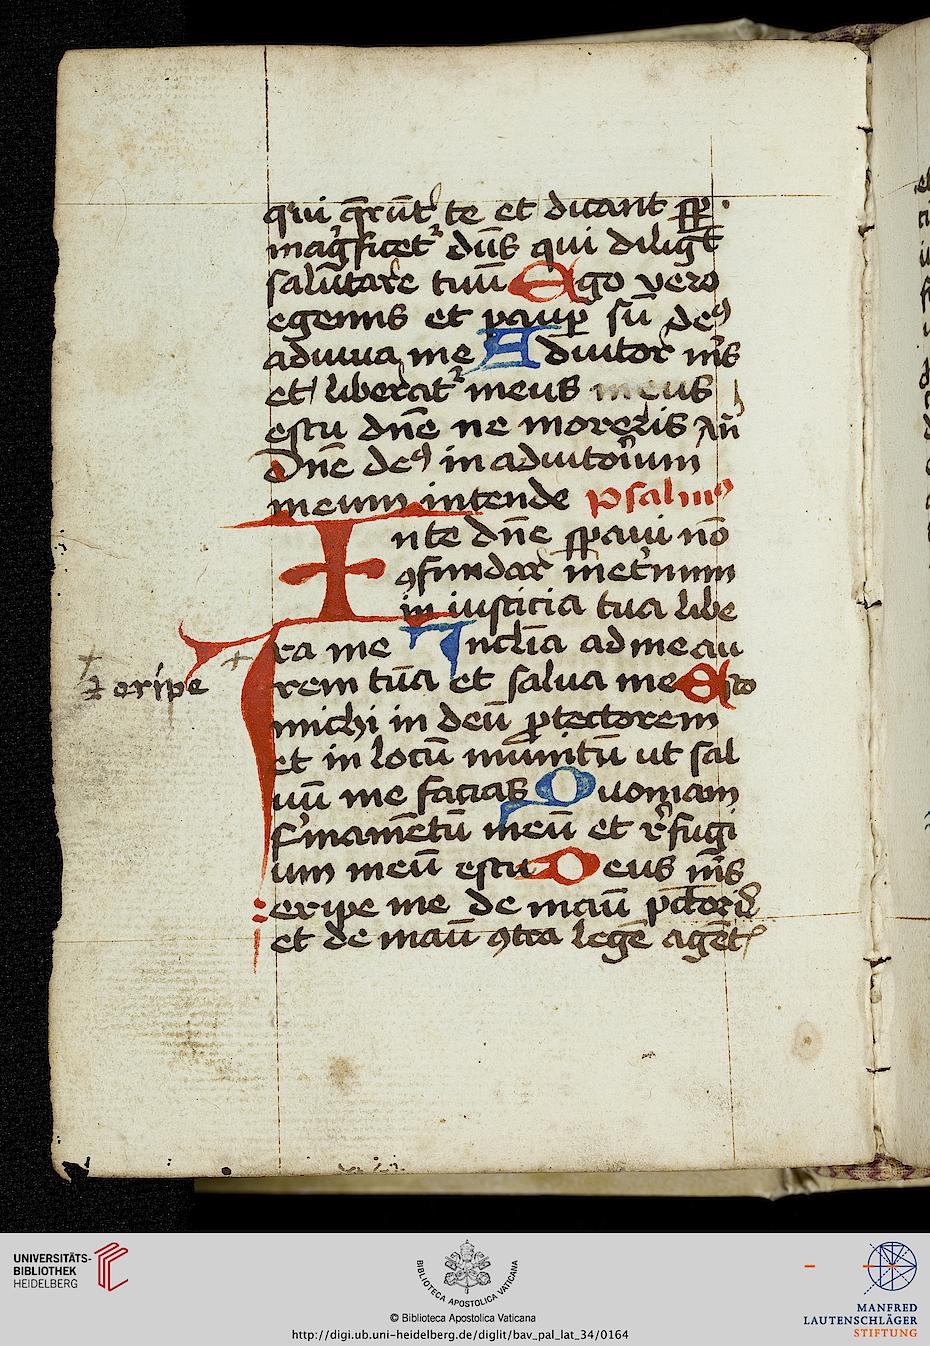 qui q̄rūt᷑ te et dicant sp̄
mag̓ficet᷑ dūs qui diligt̄
salūtare tuū Ego vero
egenus et paup̱ sū deꝰ
adiuua me Adiutor m̓s
et liberat᷑ meus meus
estu dn̄e ne moreris an̄
Dn̄e deꝰ in adiutoriū̄m
meum intende psalmꝰ
In te dn̄e sp̱aui nō
ꝯfundar inet̓num
in iusticia tua libe
ra me Inclīa ad me au
rem tuā et salua me Esto
⁊ eripe
michi in deū ꝓtectorem
et in locū munitū ut sal
uū me facias Quoniam
f̓mamētū meū et r̓fugi
um meū estu Deus m̓s
eripe me de manū pctoris
et de manū ꝯtra legē agēt
UNIVERSITÄTS-
BIBLIOTHEK
HEIDELBERG
BIBLIOTECA APOSTOLICA VATICANA
© Biblioteca Apostolica Vaticana
http://digi.ub.uni-heidelberg.de/diglit/bav_pal_lat_34/0164
MANFRED
LAUTENSCHLÄGER
STIFTUNG